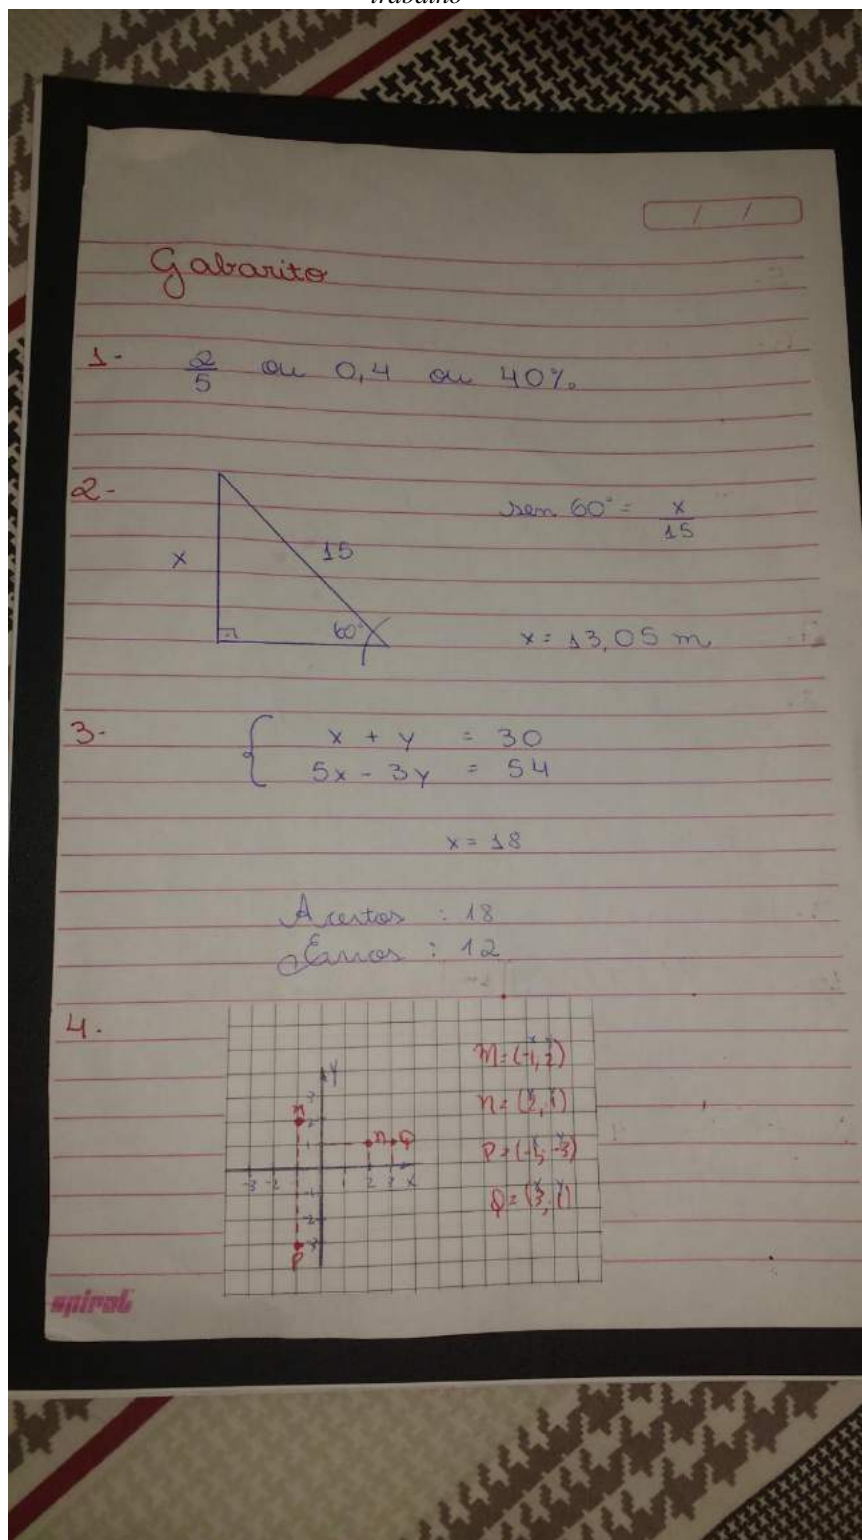 trabalho
/ /
Gabarito
1- 2/5 ou 0,4 ou 40%.
2-
x 15 60°
sen 60° = x/15
x = 13,05 m
3-
{ x + y = 30
5x - 3y = 54
x = 18
Acertos : 18
Erros : 12
4.
y
3
M 2
1 N Q
-3 -2 1 2 3 x
-1
-2
P -3
M = (-1, 2)
N = (2, 1)
P = (-1, -3)
Q = (3, 1)
spiral